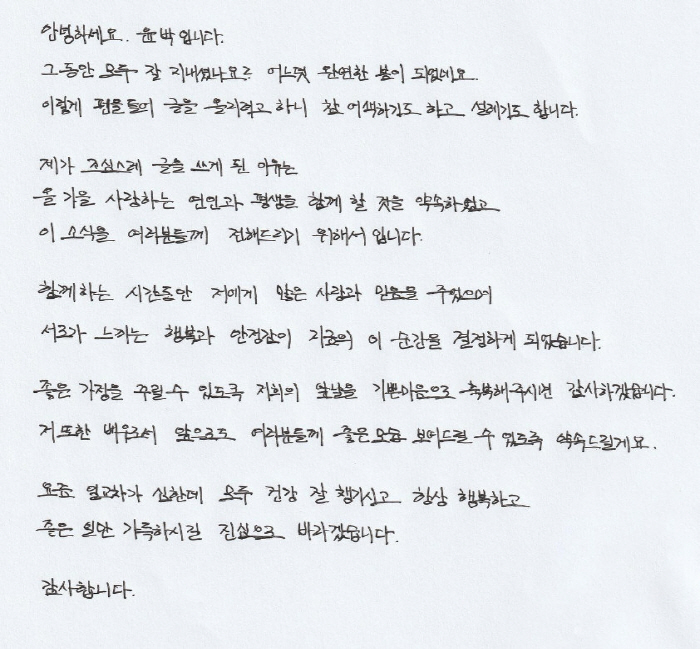 안녕하세요. 윤박입니다.
그동안 모두 잘 지내셨나요? 어느덧 완연한 봄이 되었네요.
이렇게 팬분들께 글을 올리려고 하니 참 어색하기도 하고 설레기도 합니다.
제가 조심스레 글을 쓰게 된 이유는
올 가을 사랑하는 연인과 평생을 함께 할 것을 약속하였고
이 소식을 여러분들께 전해드리기 위해서 입니다.
함께하는 시간동안 저에게 많은 사랑과 믿음을 주었으며
서로가 느끼는 행복과 안정감이 지금의 이 순간을 결정하게 되었습니다.
좋은 가정을 꾸릴 수 있도록 저희의 앞날을 기쁜마음으로 축복해주시면 감사하겠습니다.
저 또한 배우로서 앞으로도 여러분들께 좋은모습 보여드릴 수 있도록 약속드릴게요.
요즘 일교차가 심한데 모두 건강 잘 챙기시고 항상 행복하고
좋은 일만 가득하시길 진심으로 바라겠습니다.
감사합니다.